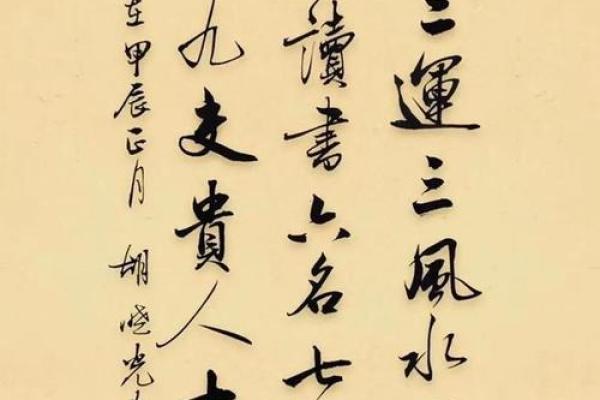 二運三風水
讀書六名七
九交貴人
在甲辰正月 胡光